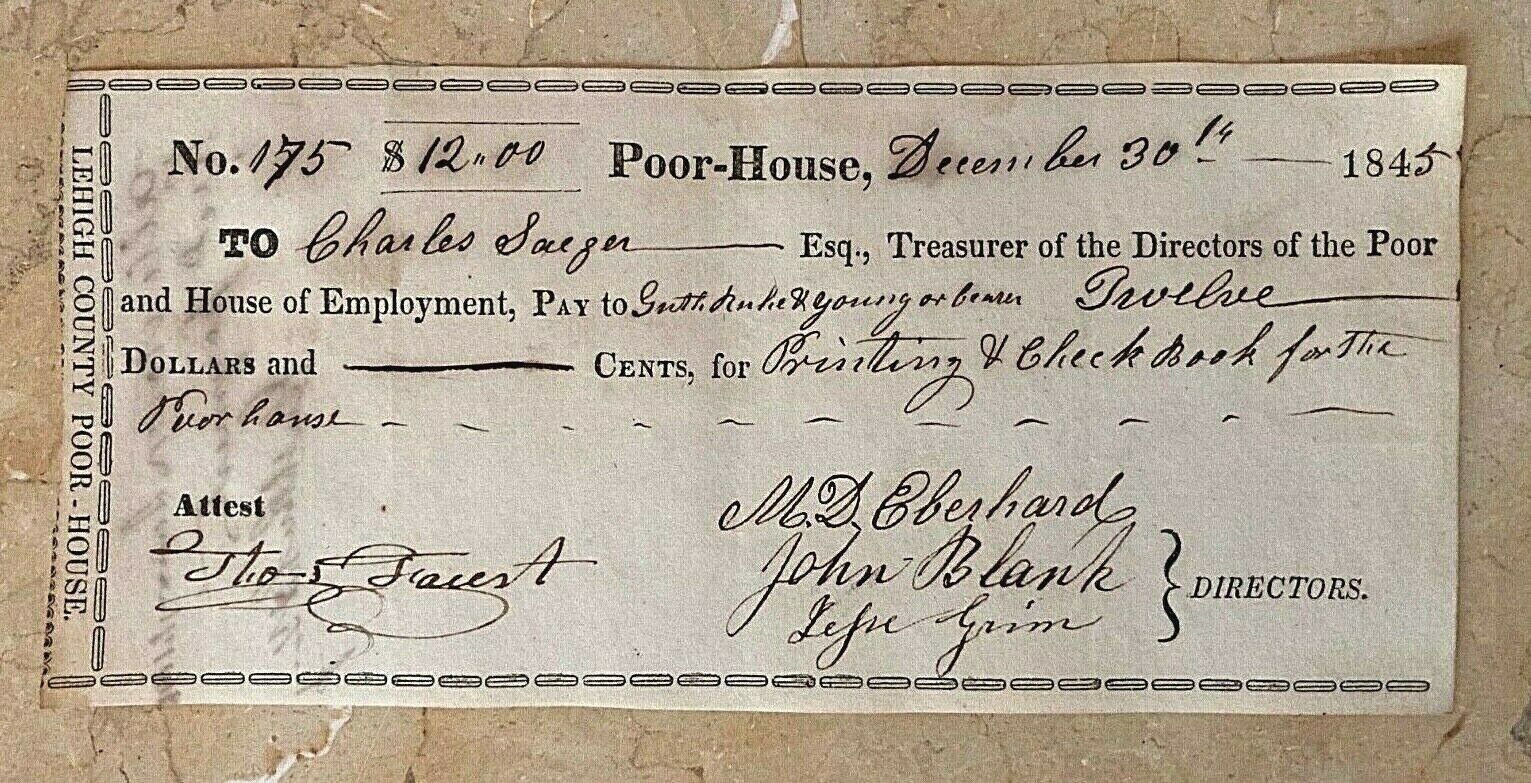 LEHIGH COUNTY POOR-HOUSE.
No. 175 $12.00 Poor-House, December 30th 1845
TO Charles Saeger Esq., Treasurer of the Directors of the Poor
and House of Employment, PAY to Guth Ruhe & Young or bearer Twelve
DOLLARS and CENTS, for Printing & Check Book for the
Poor house
Attest
Thos Faust
M. D. Eberhard
John Blank
Jesse Grim
DIRECTORS.